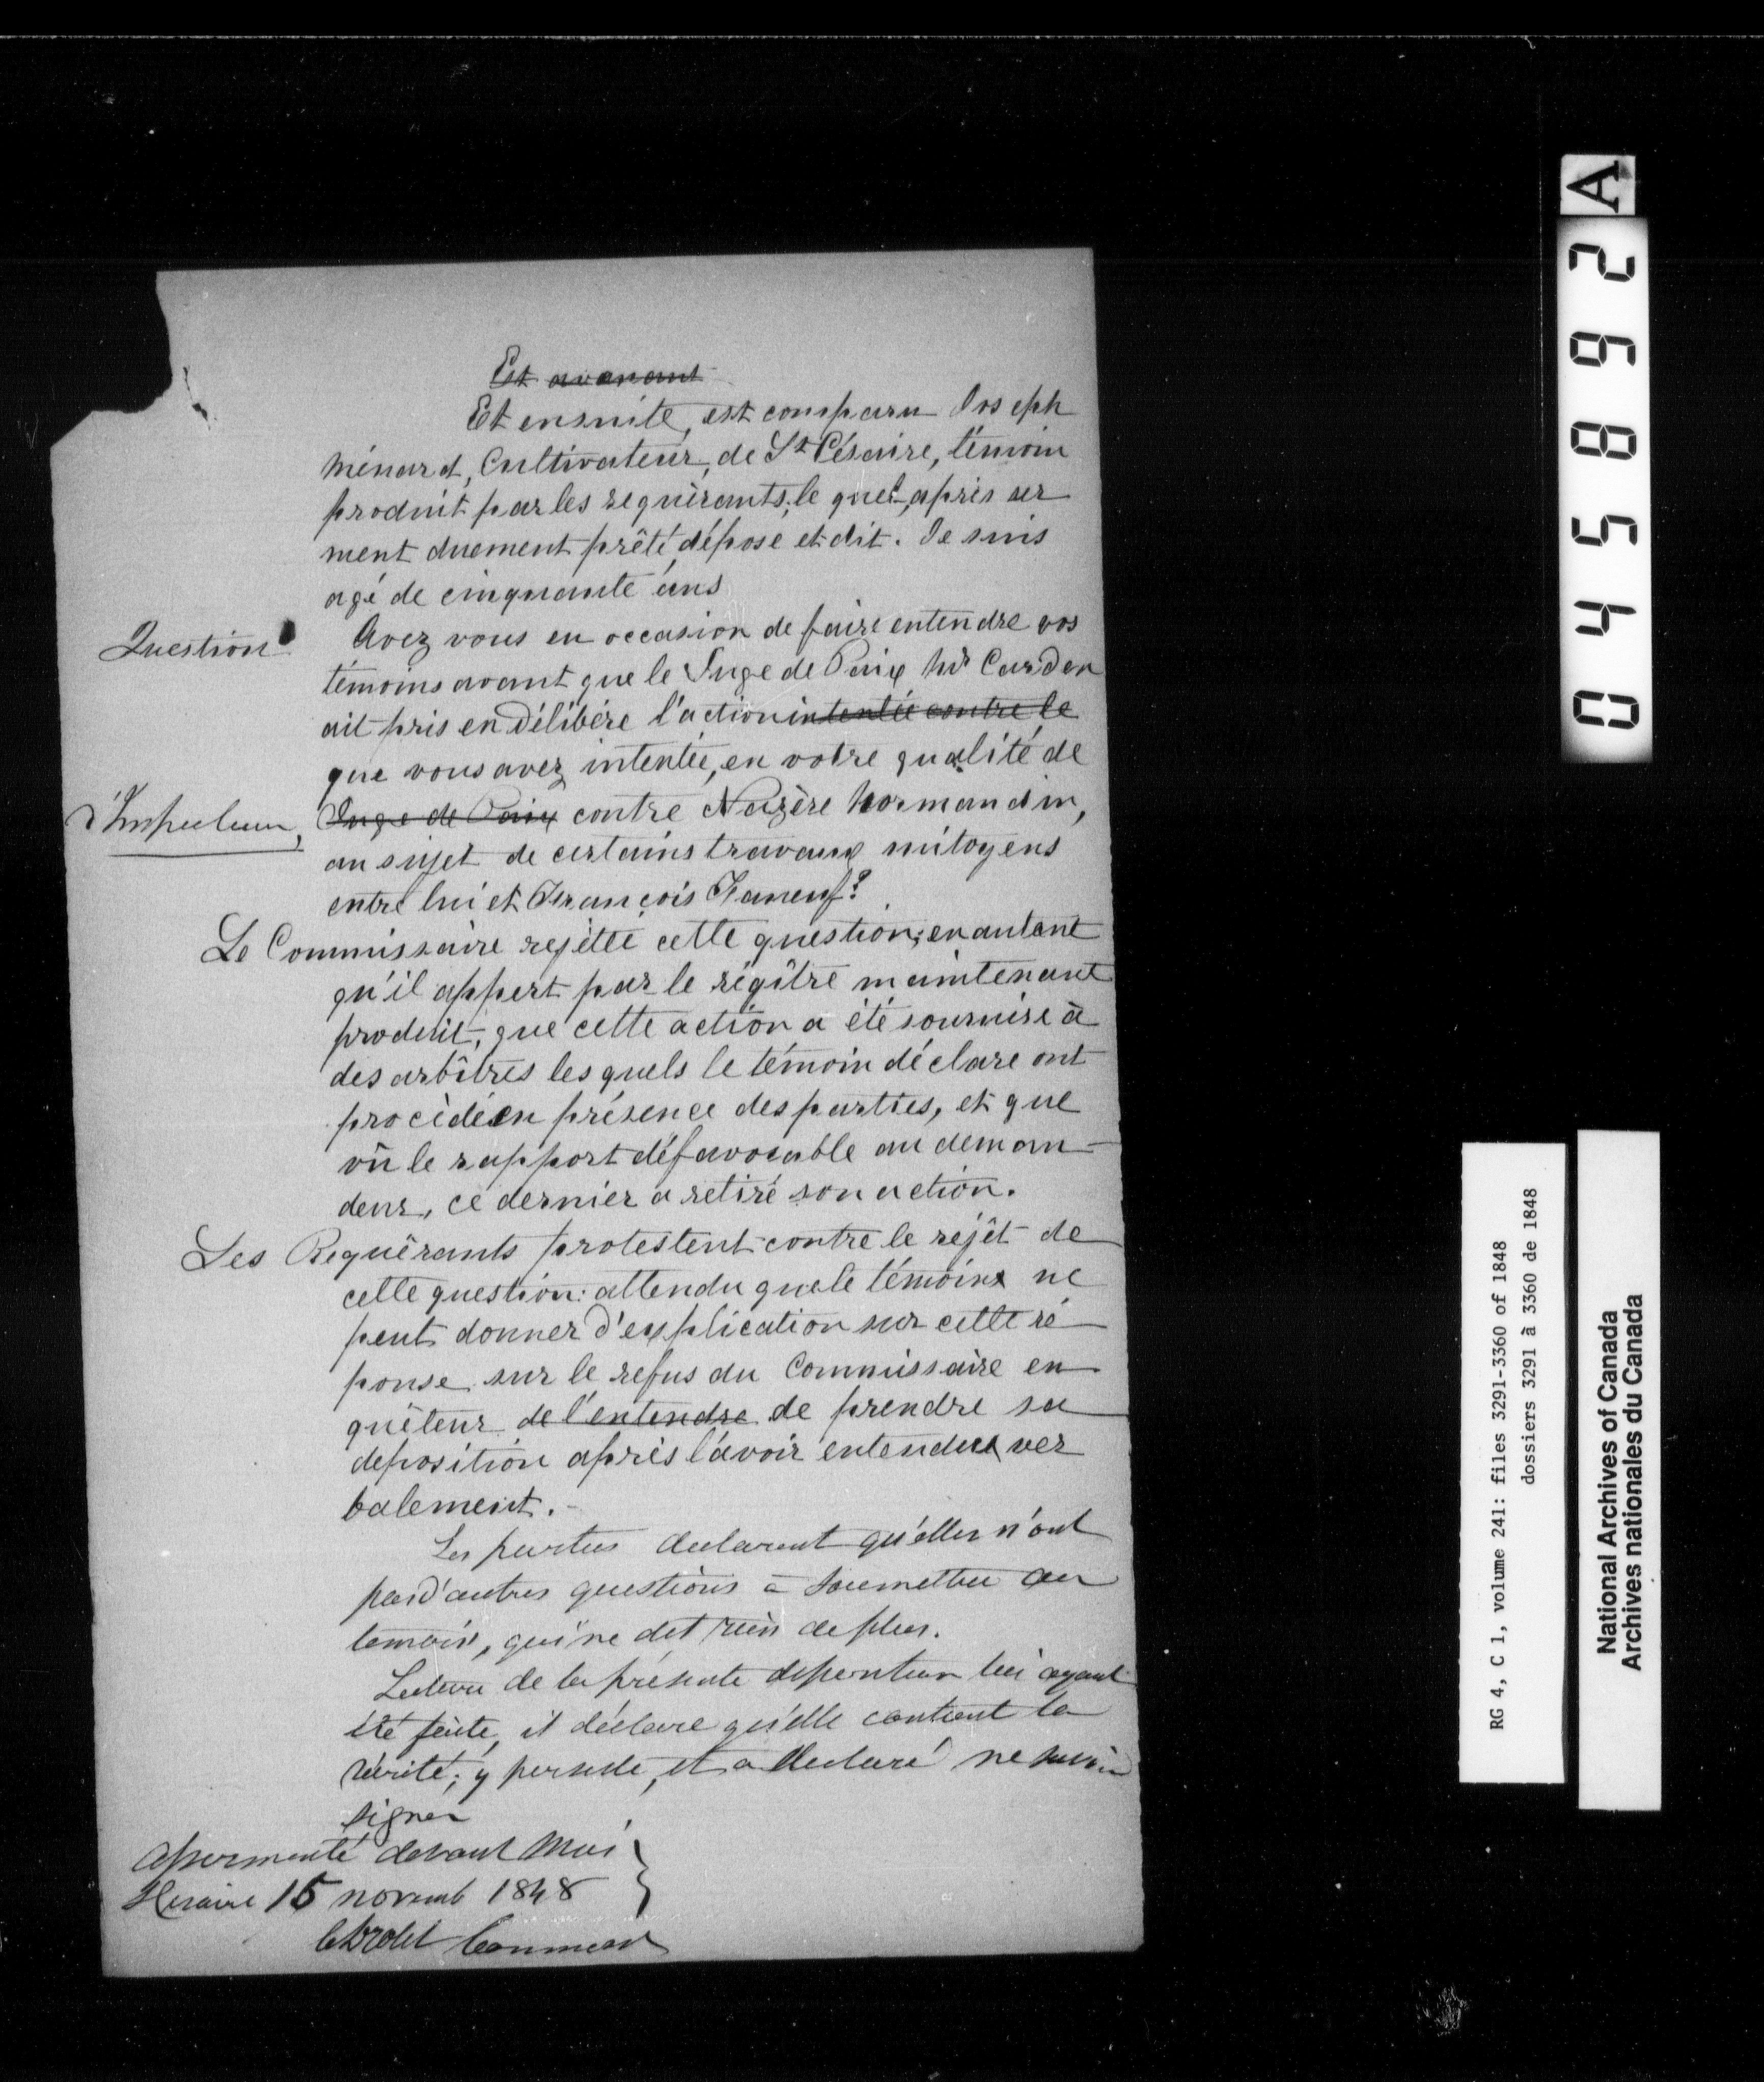 Et avanant
Et ensuite, est comparu Joseph
Ménard, Cultivateur, de St Césaire, témoin
produit par les requèrants, le quel, après ser
ment duement prêté, dépose et dit. Je suis
agé de cinquante ans
Question Avez vous eu occasion de faire entendre vos
témoins avant que le Juge de Paix Mr Carden
ait pris en délibéré l'action intentée contre le
que vous avez intentée, en votre qualité de
d'Inspecteur, Juge de Paix contre Nazère Normandin,
au sujet de certains travaux mitoyens
entre lui et François Faneuf?
Le Commissaire rejette cette question; en autant
qu'il appert par le régître maintenant
produit, que cette action a été soumise à
des arbîtres les quels le témoin déclare ont
procédé en présence des parties, et que
vû le rapport défavorable au deman-
deur, ce dernier a retiré son action.
Les Requèrants protestent contre le rejêt de
cette question: attendu que le témoin ne
peut donner d'explication sur cette ré
ponse sur le refus du Commissaire en
quêteur de l'entendre de prendre sa
deposition après l'avoir entendue ver
balement.-
Les parties declarent qu'elles n'ont
pas d'autres questions à soumettre au
temoin, qui ne dit rien de plus.
Lecture de la présente deposition lui ayant
été faite, il déclare qu'elle contient la
vérité, y persiste, et a declaré ne savoir
signer
Assermenté devant moi
St Cesaire 15 novemb 1848
A
045892
RG 4, C 1, volume 241: files 3291-3360 of 1848
dossiers 3291 à 3360 de 1848
National Archives of Canada
Archives nationales du Canada